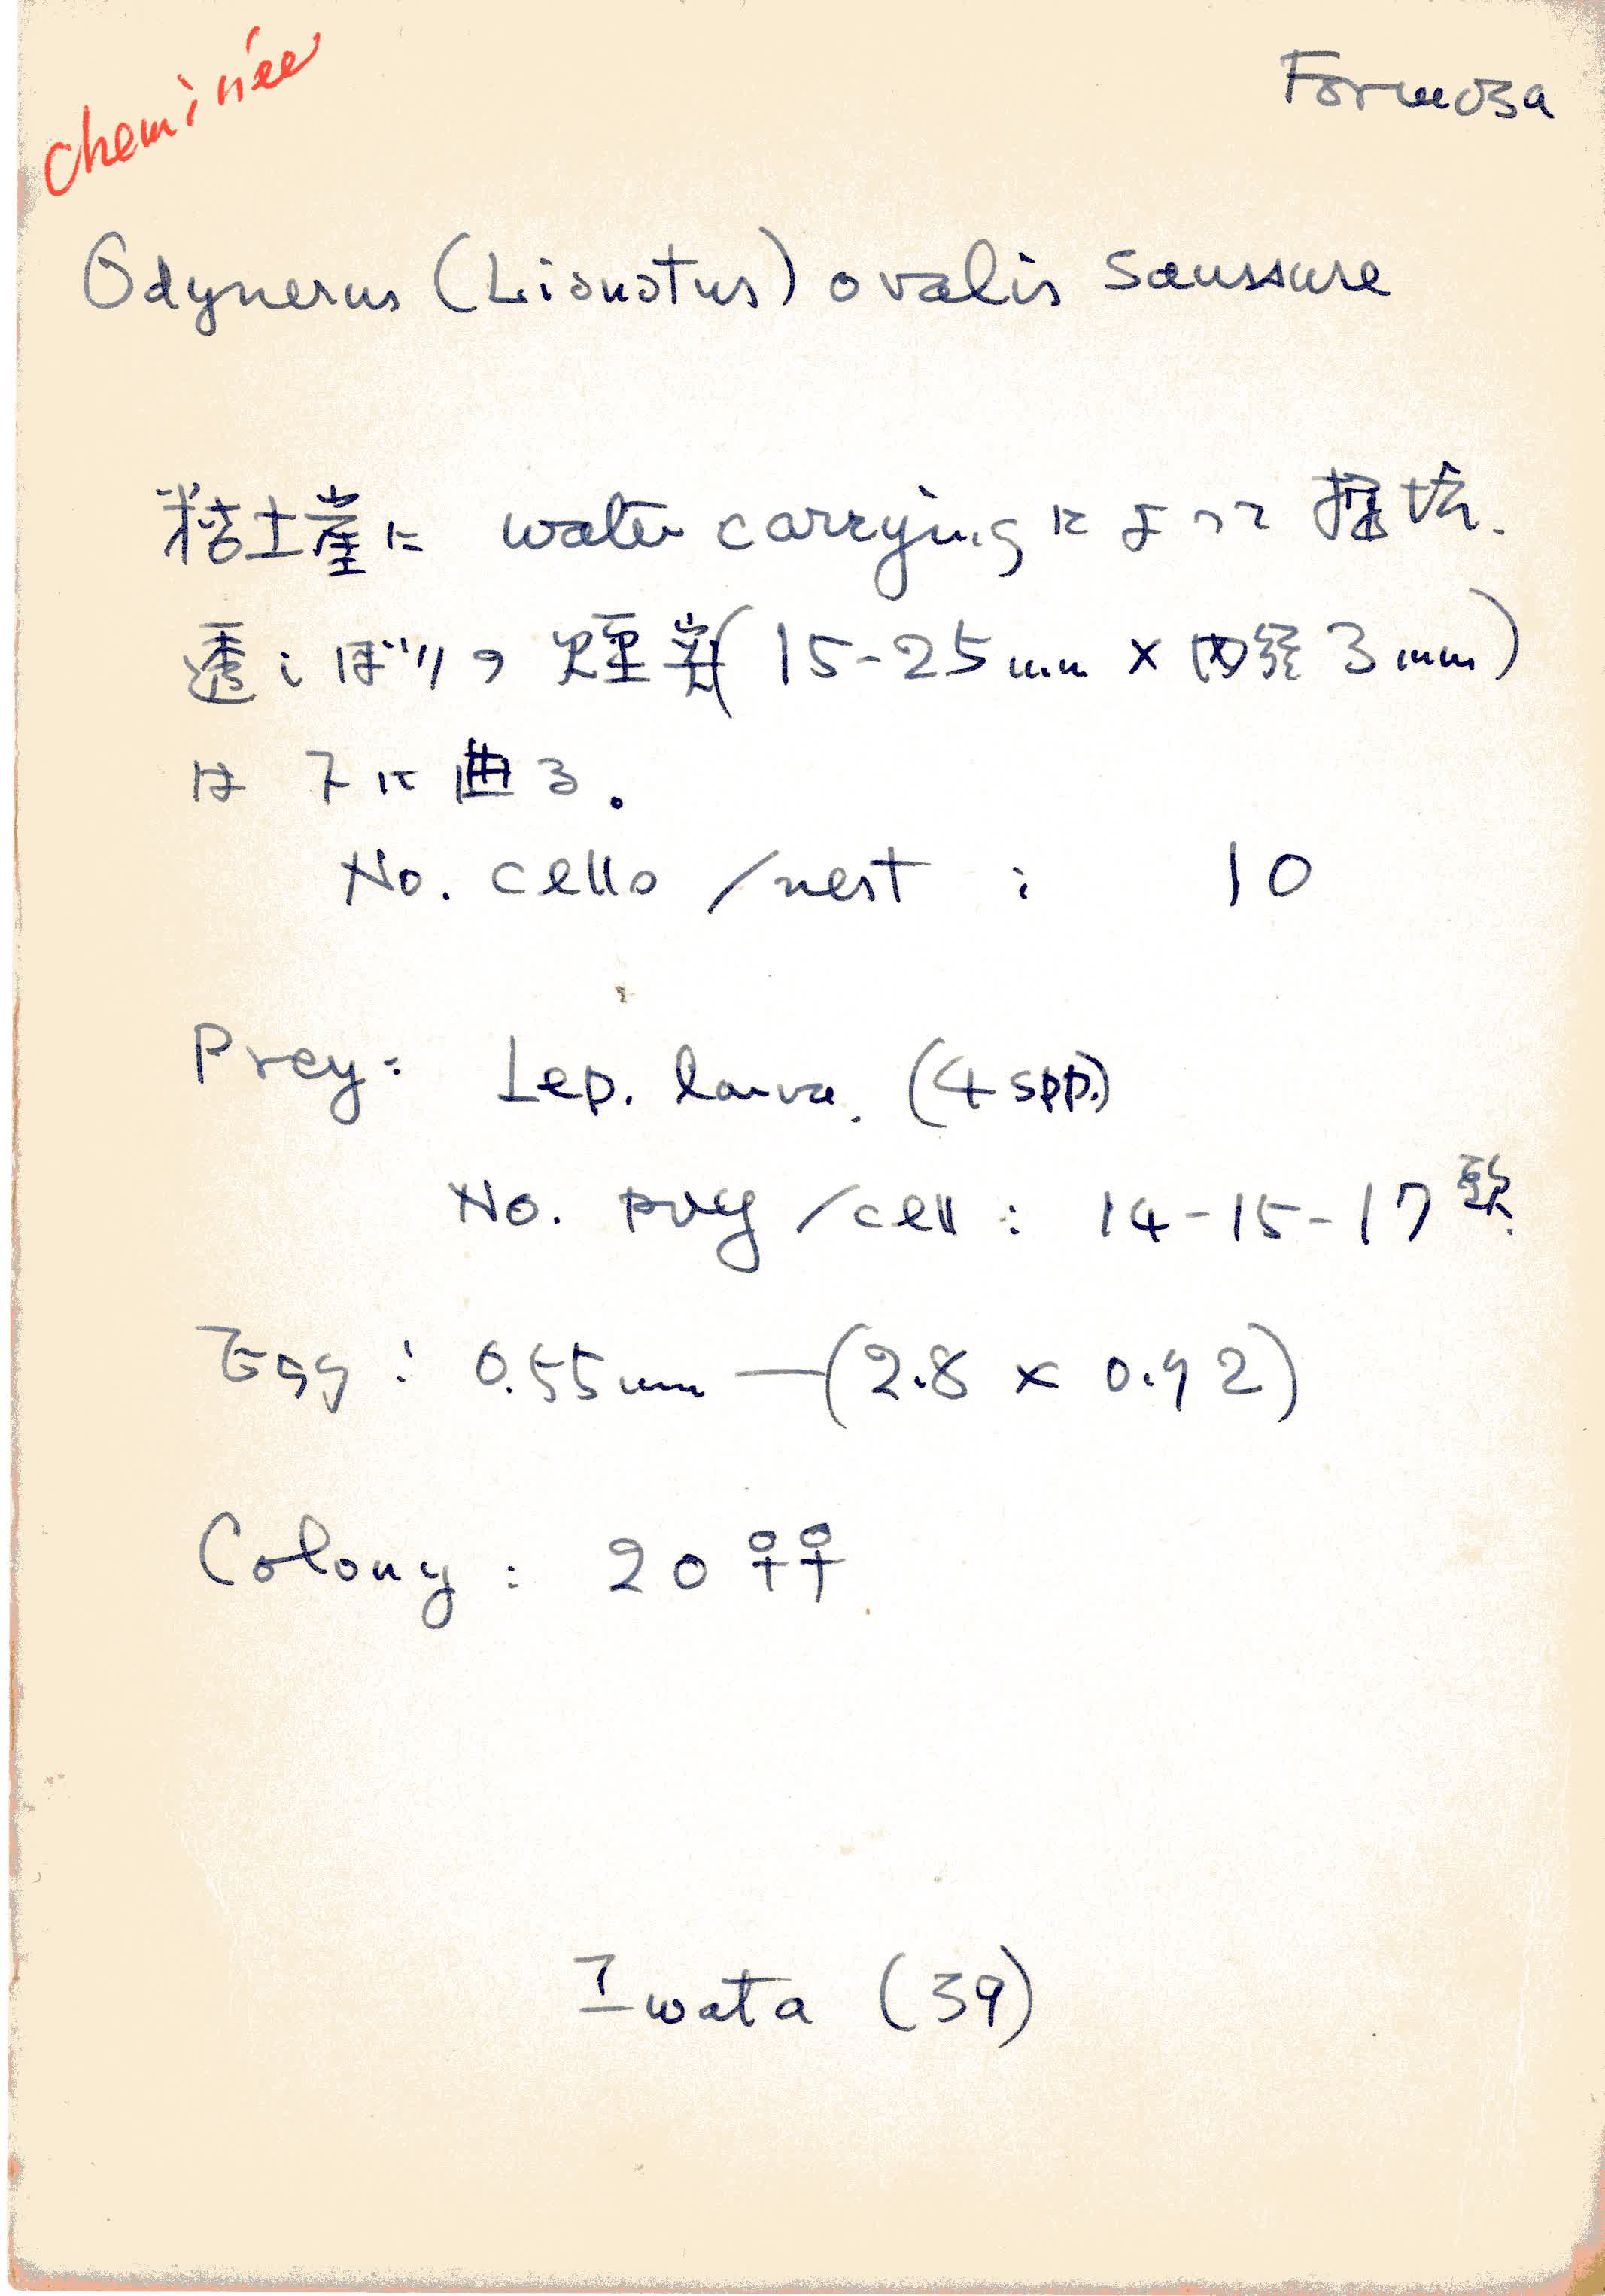 cheminée
Formosa
Odynerus (Lionotus) ovalis Saussure
粘土崖に water carryingによって掘坑.
透しぼりの煙突(15-25mm × 内径3mm)
は下に曲る。
No. cells /nest : 10
Prey: Lep. larva. (4 spp.)
No. prey /cell : 14-15-17
Egg : 0.55mm —(2.8 × 0.92)
Colony : 20 ♀♀
Iwata (39)